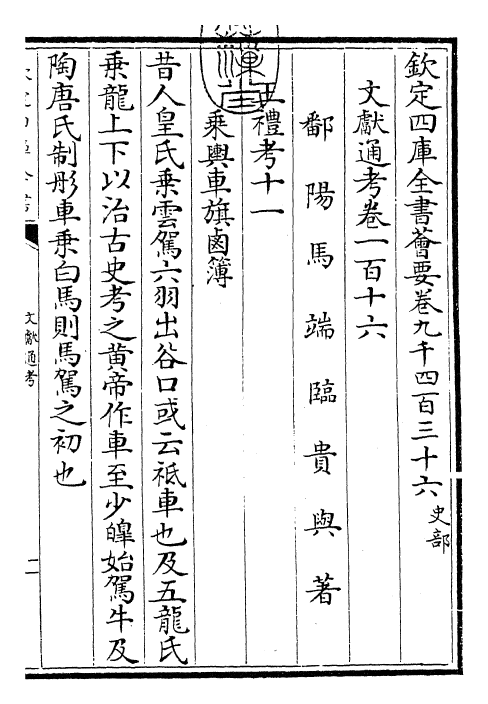 欽定四庫全書薈要卷九千四百三十六 史部
文獻通考卷一百十六
鄱陽馬端臨貴與著
王禮考十一
乘輿車旗鹵簿
昔人皇氏乘雲駕六羽出谷口或云祗車也及五龍氏
乘龍上下以治古史考之黄帝作車至少皥始駕牛及
陶唐氏制彤車乘白馬則馬駕之初也
文獻通考
二